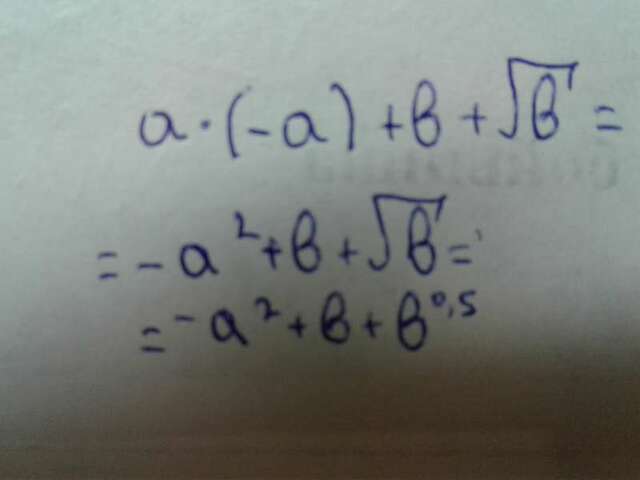 a·(-a)+b+√b=
=-a²+b+√b=
=-a²+b+b^0,5